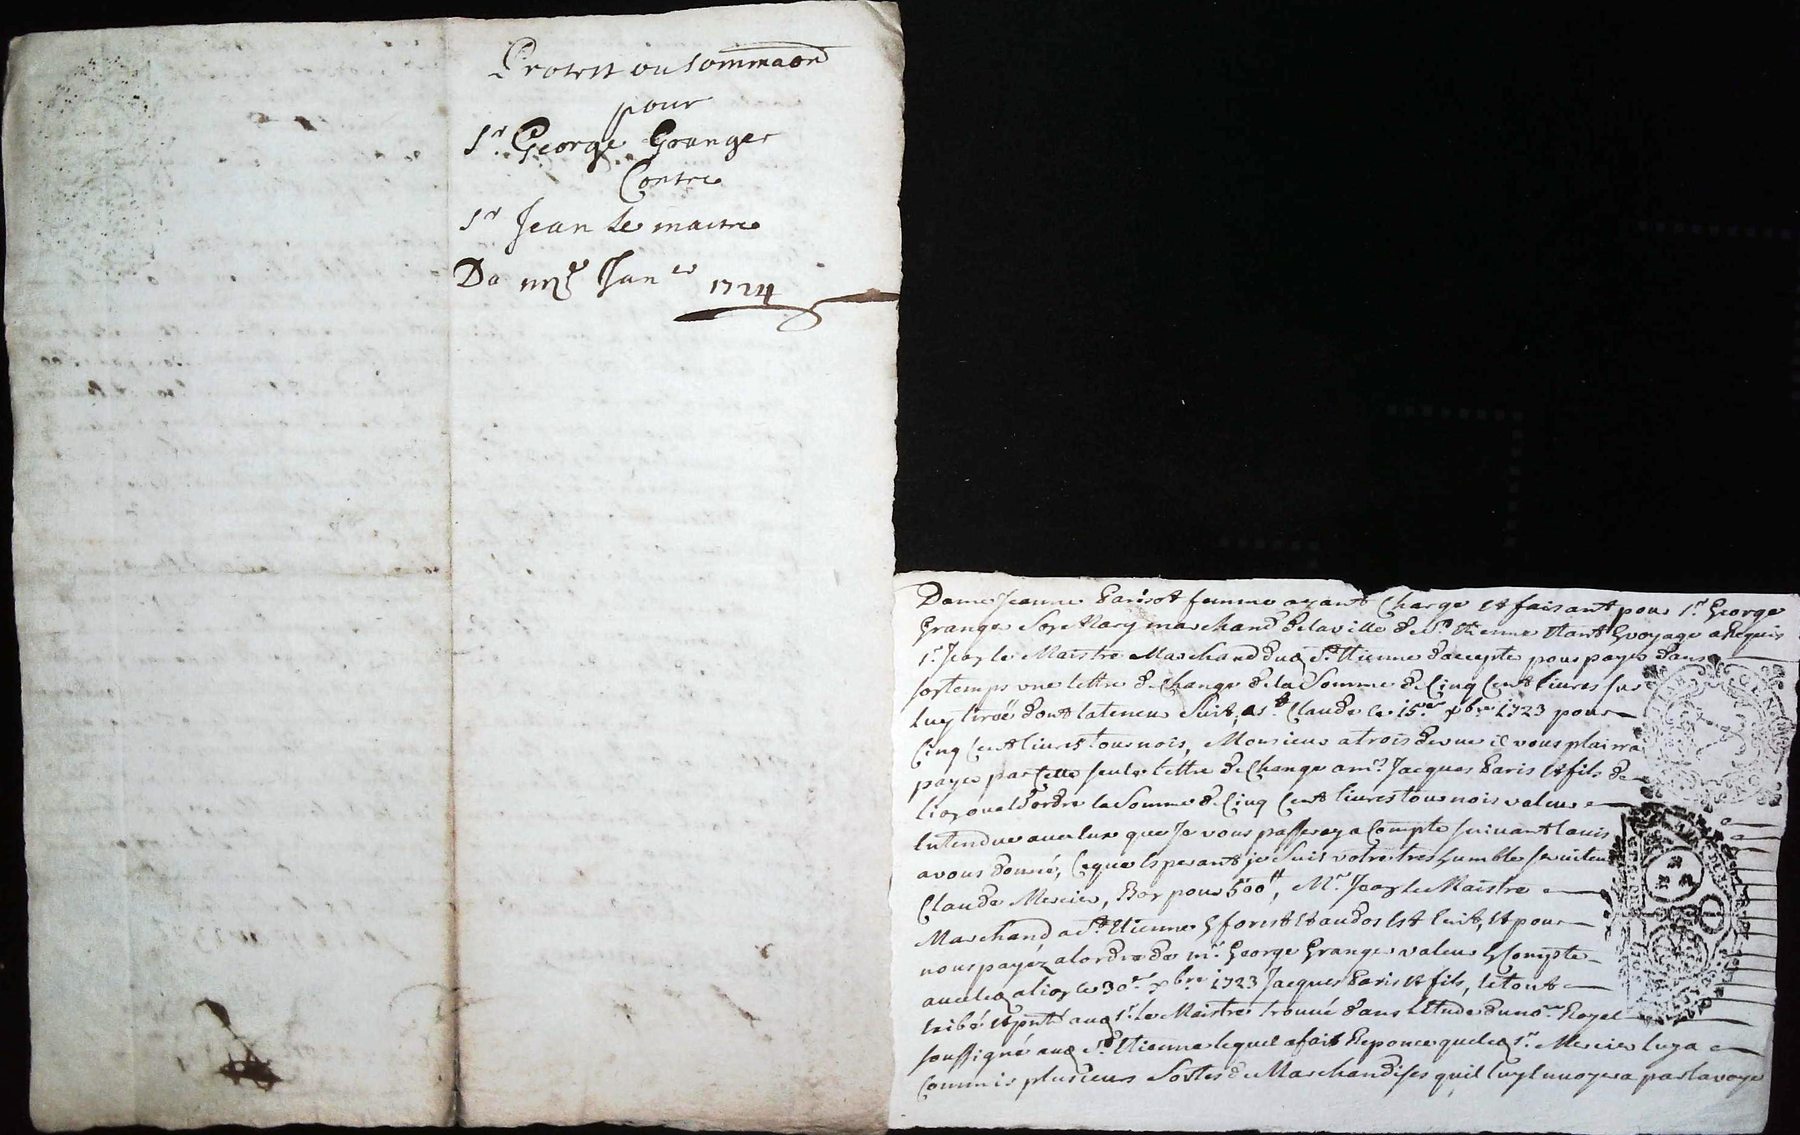 Protest ou sommaon
pour
Sr. George Granger
Contre
Sr Jean Le maitre
Du Janer 1724
Dame Jeanne Parisot femme ayant Charge et faisant pour Sr. George
Granger Son Mary marchand de la ville de St. Etienne Etant En voyage a Requis
Sr. Jean le Maistre Marchand dud. St. Etienne daccepter pour payer dans
son temps une lettre de Change de la Somme de Cinq Cent livres sur
luy tirée dont la teneur Suit, a St. Claude ce 15er. xbre 1723 pour
Cinq Cent livres tournois, Monsieur a trois de vue il vous plairra
payer par Cette seule lettre de Change a mrs. Jacques Paris et fils de
lion ou a l'ordre la Somme de Cinq Cent livres tournois valeur
Entendue avec lux que Je vous passeray a Compte suivant lavis
a vous donné, Ce que Esperant je Suis votre tres humble serviteur
Claude Mercier, Bon pour 500 tt, Mr. Jean le Maistre
Marchand a St. Etienne En forest Et au dos Est Ecrit, Et pour
nous payez a lordre de mr. George Granger valeur En Compte
avec led. a lion le 30er. xbre 1723 Jacques Paris et fils, le tout
exibé et pnté aud. Sr. le Maistre trouvé dans l'Etude du nore. Royal
soussigné aud. St. Etienne lequel a fait Reponce que led. Sr. Mercier luy a
Commis plusieurs Sortes de Marchandises qu'il luy Envoyera par la voye